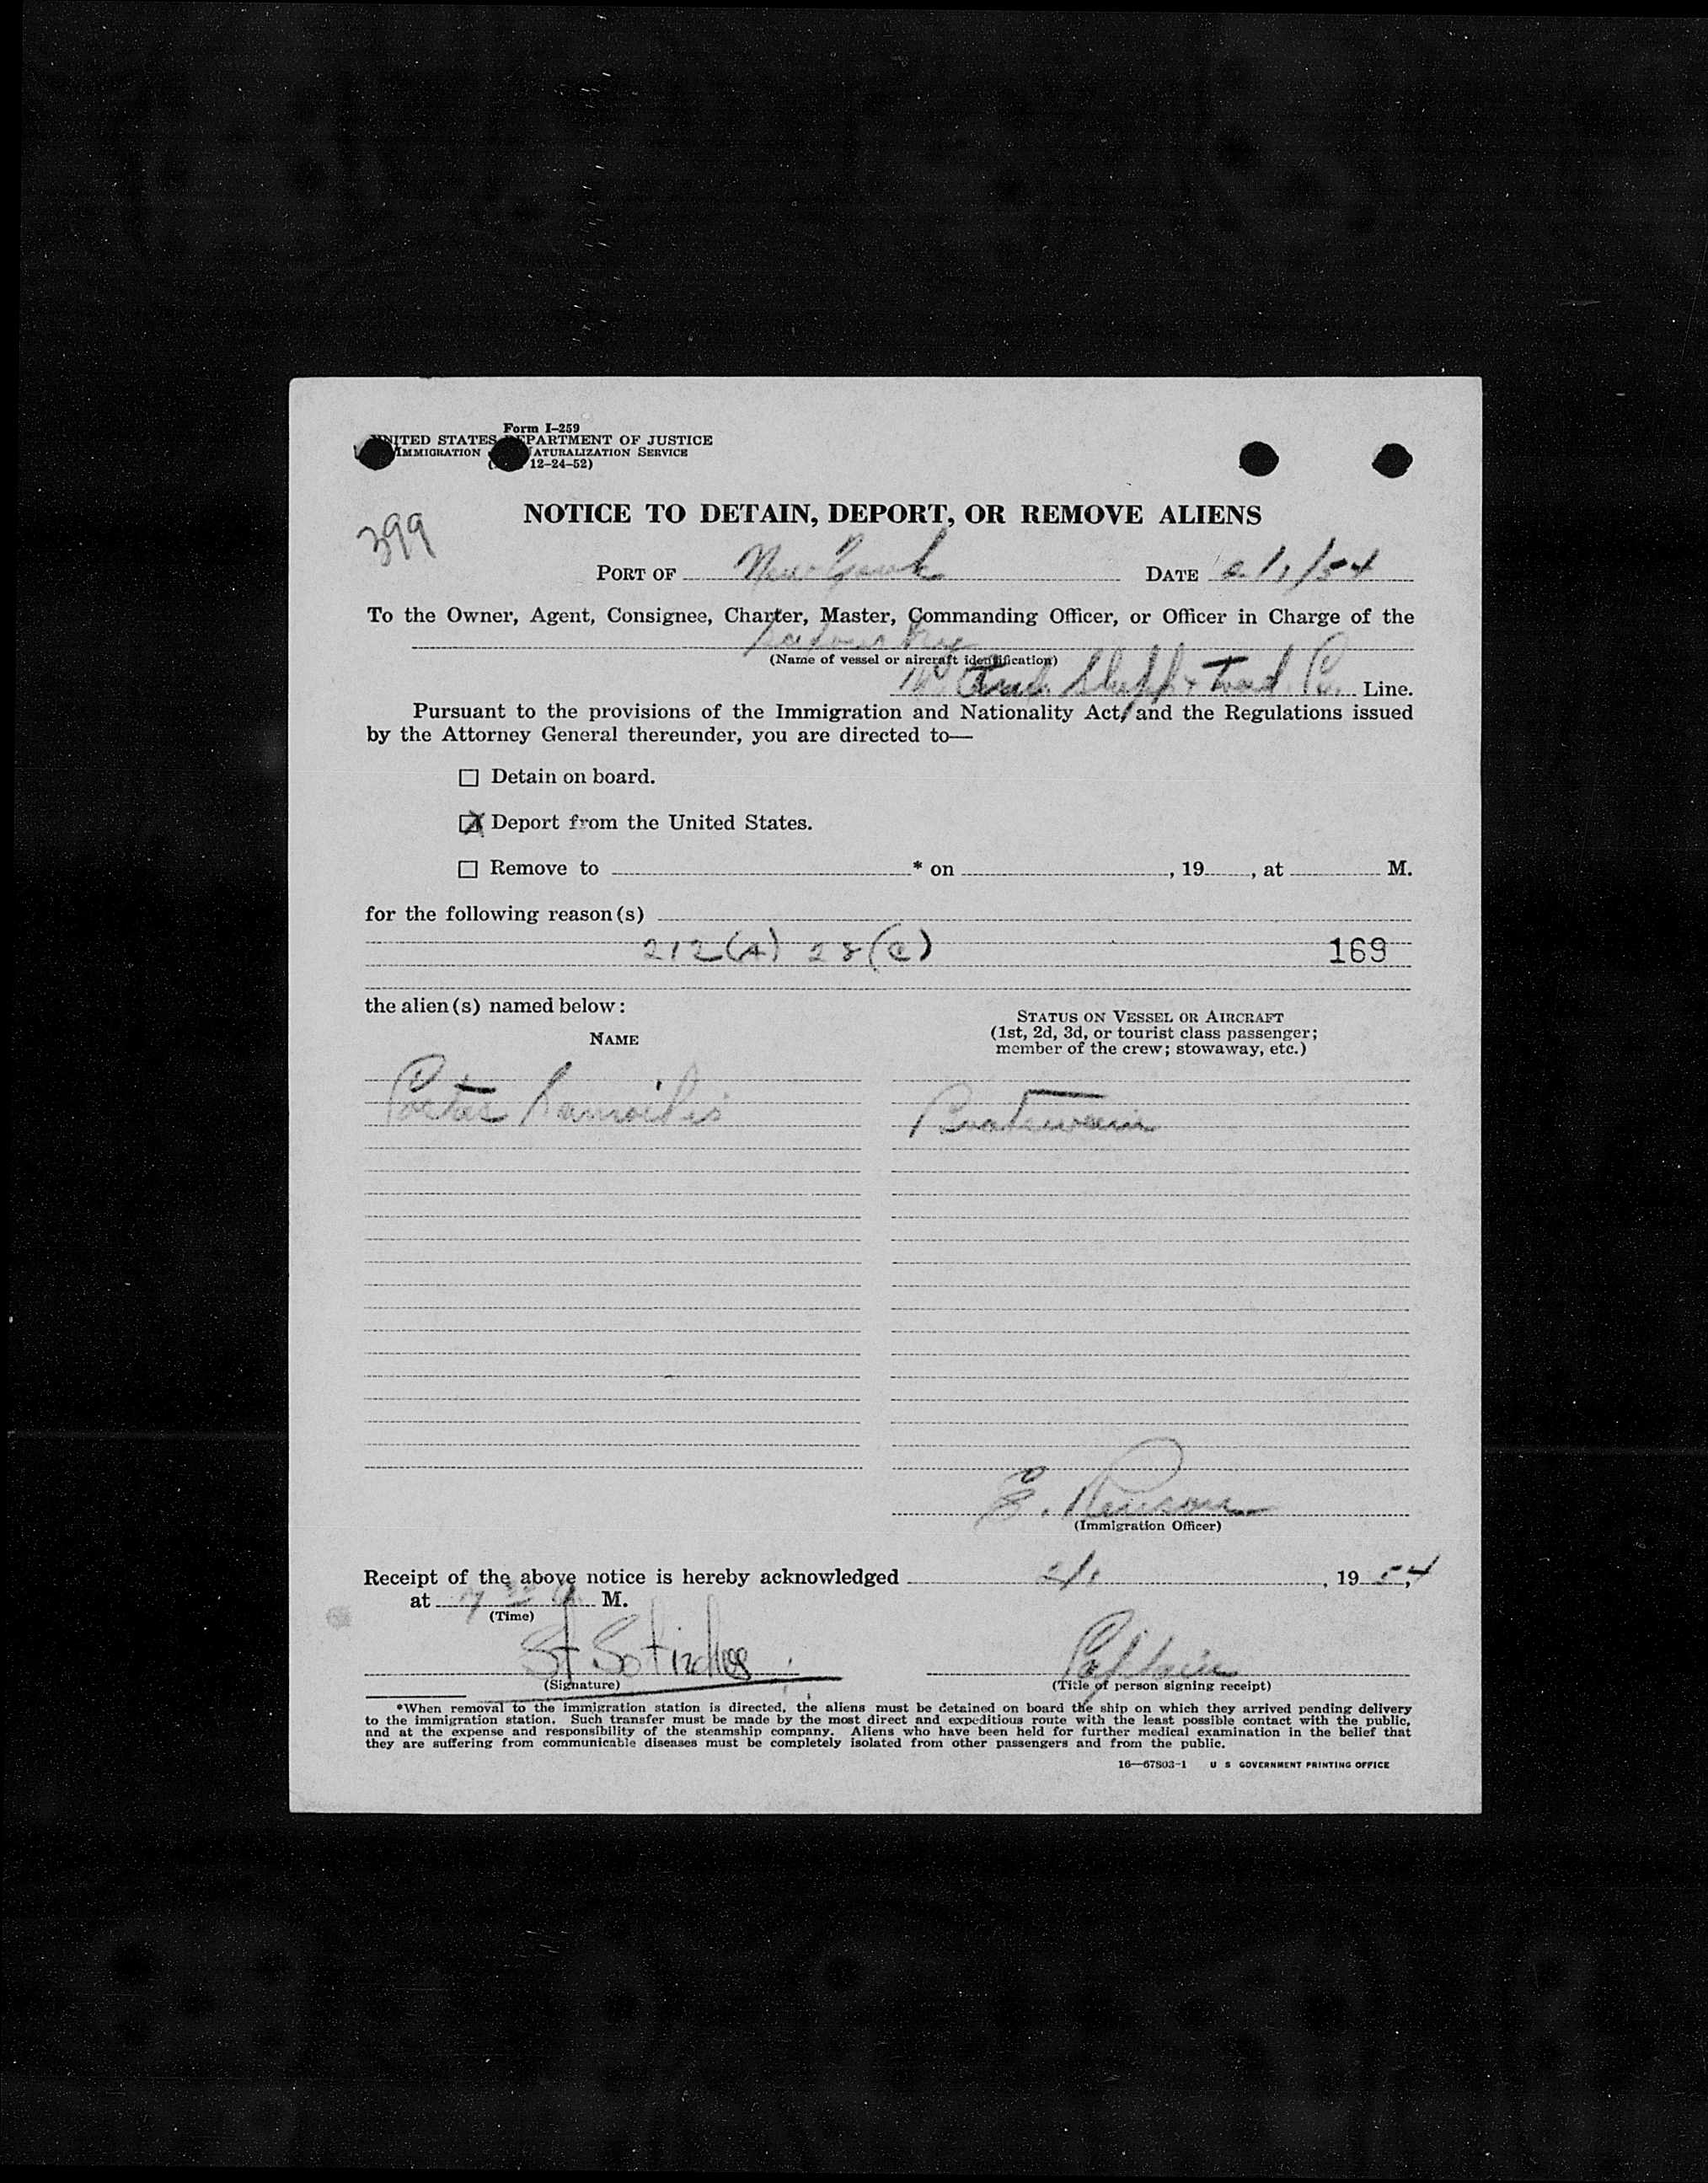 Form I-259
UNITED STATES DEPARTMENT OF JUSTICE
IMMIGRATION NATURALIZATION SERVICE
12-24-52)
NOTICE TO DETAIN, DEPORT, OR REMOVE ALIENS
399
PORT OF New York DATE 2/1/54
To the Owner, Agent, Consignee, Charter, Master, Commanding Officer, or Officer in Charge of the
(Name of vessel or aircraft identification)
Trad. Co. Line.
Pursuant to the provisions of the Immigration and Nationality Act, and the Regulations issued
by the Attorney General thereunder, you are directed to—
☐ Detain on board.
☒ Deport from the United States.
☐ Remove to * on , 19 , at M.
for the following reason(s)
212(A) 28(C)
169
the alien(s) named below:
NAME
STATUS ON VESSEL OR AIRCRAFT
(1st, 2d, 3d, or tourist class passenger;
member of the crew; stowaway, etc.)
Boatswain
E.
(Immigration Officer)
Receipt of the above notice is hereby acknowledged 2/1, 19 54
at M.
(Time)
St.
(Signature)
Captain
(Title of person signing receipt)
*When removal to the immigration station is directed, the aliens must be detained on board the ship on which they arrived pending delivery
to the immigration station. Such transfer must be made by the most direct and expeditious route with the least possible contact with the public,
and at the expense and responsibility of the steamship company. Aliens who have been held for further medical examination in the belief that
they are suffering from communicable diseases must be completely isolated from other passengers and from the public.
16—67803-1 U S GOVERNMENT PRINTING OFFICE